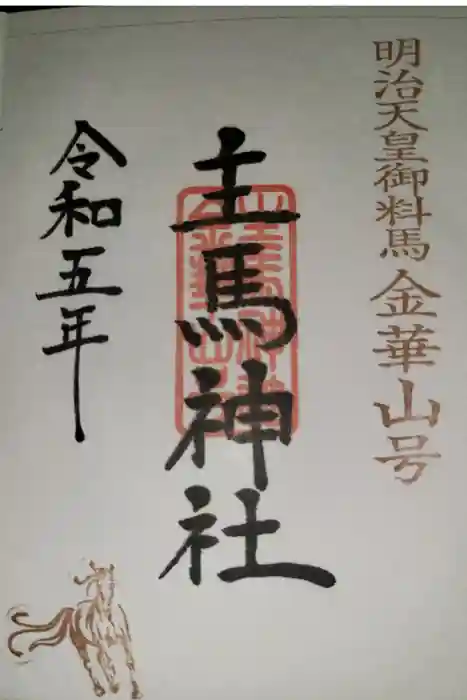 明治天皇御料馬金華山号
主馬神社
令和五年